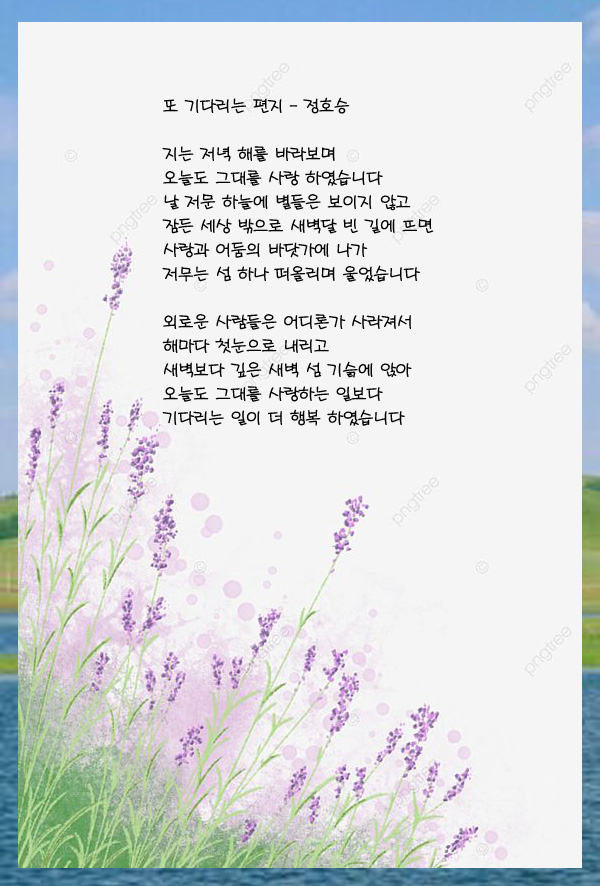 또 기다리는 편지 - 정호승
지는 저녁 해를 바라보며
오늘도 그대를 사랑 하였습니다
날 저문 하늘에 별들은 보이지 않고
잠든 세상 밖으로 새벽달 빈 길에 뜨면
사랑과 어둠의 바닷가에 나가
저무는 섬 하나 떠올리며 울었습니다
외로운 사람들은 어디론가 사라져서
해마다 첫눈으로 내리고
새벽보다 깊은 새벽 섬 기슭에 앉아
오늘도 그대를 사랑하는 일보다
기다리는 일이 더 행복 하였습니다
pngtree
pngtree
pngtree
pngtree
pngtree
pngtree
pngtree
pngtree
pngtree
pngtree